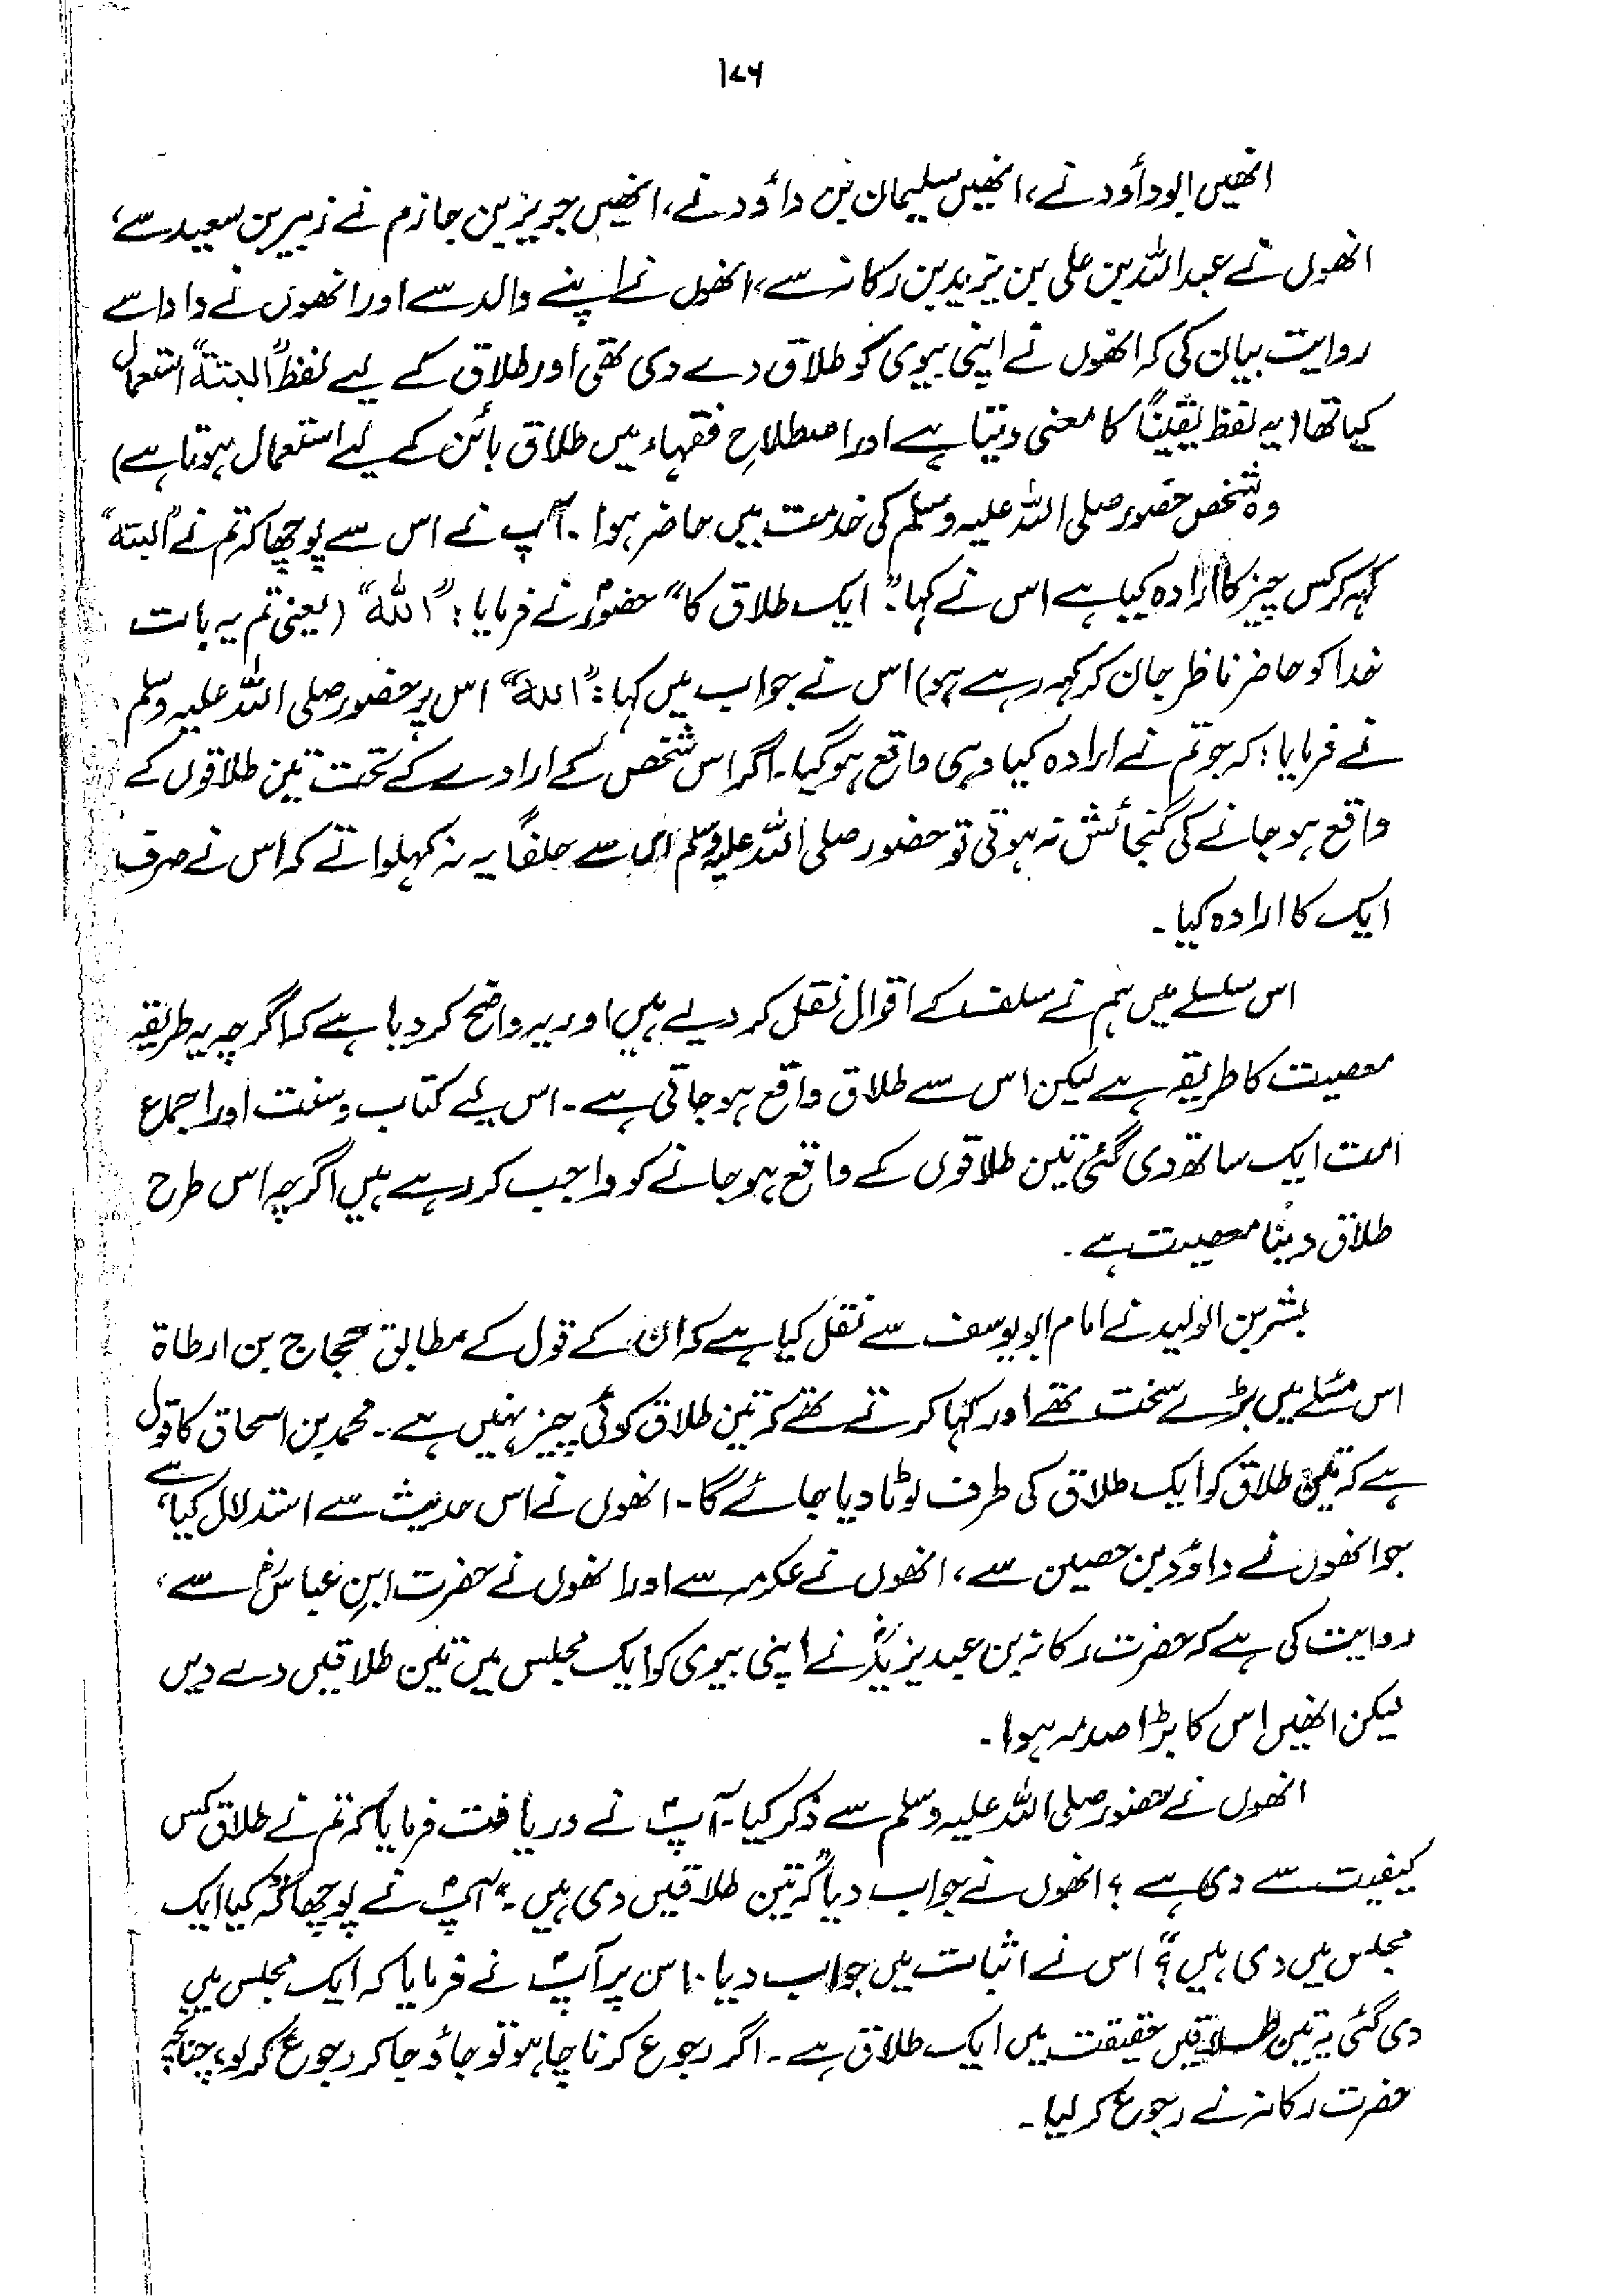 ۱۷۶
انھیں ابوداؤد نے، انھیں سلیمان بن داؤد نے، انھیں جریر بن حازم نے زبیر بن سعید سے،
انھوں نے عبداللہ بن علی بن یزید بن رکانہ سے، انھوں نے اپنے والد سے اور انھوں نے دادا سے
روایت بیان کی کہ انھوں نے اپنی بیوی کو طلاق دے دی تھی اور طلاق کے لیے لفظ "البتۃ" استعمال
کیا تھا (یہ لفظ یقیناً کا معنی دیتا ہے اور اصطلاحِ فقہاء میں طلاق بائن کے لیے استعمال ہوتا ہے)
وہ شخص حضور صلی اللہ علیہ وسلم کی خدمت میں حاضر ہوا۔ آپ نے اس سے پوچھا کہ تم نے "البتہ"
کہہ کر کس چیز کا ارادہ کیا ہے اس نے کہا: "ایک طلاق کا" حضورؐ نے فرمایا: "اللہ" (یعنی تم یہ بات
خدا کو حاضر ناظر جان کر کہہ رہے ہو) اس نے جواب میں کہا: "اللہ" اس پر حضور صلی اللہ علیہ وسلم
نے فرمایا: کہ جو تم نے ارادہ کیا وہی واقع ہو گیا۔ اگر اس شخص کے ارادے کے تحت تین طلاقوں کے
واقع ہو جانے کی گنجائش نہ ہوتی تو حضور صلی اللہ علیہ وسلم اس سے حلفاً یہ نہ کہلواتے کہ اس نے صرف
ایک کا ارادہ کیا۔
اس سلسلے میں ہم نے سلف کے اقوال نقل کر دیے ہیں اور یہ واضح کر دیا ہے کہ اگرچہ یہ طریقہ
معصیت کا طریقہ ہے لیکن اس سے طلاق واقع ہو جاتی ہے۔ اس لیے کتاب و سنت اور اجماع
امت ایک ساتھ دی گئی تین طلاقوں کے واقع ہو جانے کو واجب کر رہے ہیں اگرچہ اس طرح
طلاق دینا معصیت ہے۔
بشر بن الولید نے امام ابو یوسف سے نقل کیا ہے کہ ان کے قول کے مطابق حجاج بن ارطاۃ
اس مسئلے میں بڑے سخت تھے اور کہا کرتے تھے کہ تین طلاق کوئی چیز نہیں ہے۔ محمد بن اسحاق کا قول
ہے کہ تین طلاق کو ایک طلاق کی طرف لوٹا دیا جائے گا۔ انھوں نے اس حدیث سے استدلال کیا ہے،
جو انھوں نے داؤد بن حصین سے، انھوں نے عکرمہ سے اور انھوں نے حضرت ابن عباسؓ سے،
روایت کی ہے کہ حضرت رکانہ بن عبد یزیدؓ نے اپنی بیوی کو ایک مجلس میں تین طلاقیں دے دیں
لیکن انھیں اس کا بڑا صدمہ ہوا۔
انھوں نے حضور صلی اللہ علیہ وسلم سے ذکر کیا۔ آپؐ نے دریافت فرمایا کہ تم نے طلاق کس
کیفیت سے دی ہے؟ انھوں نے جواب دیا "کہ تین طلاقیں دی ہیں۔" آپؐ نے پوچھا "کہ کیا ایک
مجلس میں دی ہیں؟" اس نے اثبات میں جواب دیا۔ اس پر آپؐ نے فرمایا کہ ایک مجلس میں
دی گئی یہ تین طلاقیں حقیقت میں ایک طلاق ہے۔ اگر رجوع کرنا چاہو تو جاؤ جا کر رجوع کر لو، چنانچہ
حضرت رکانہ نے رجوع کر لیا۔